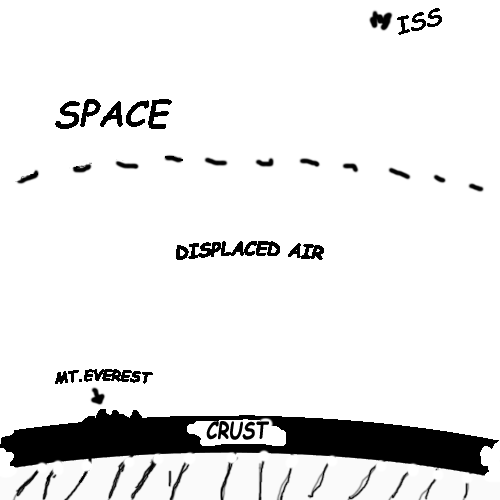 ISS
SPACE
DISPLACED AIR
MT.EVEREST
CRUST